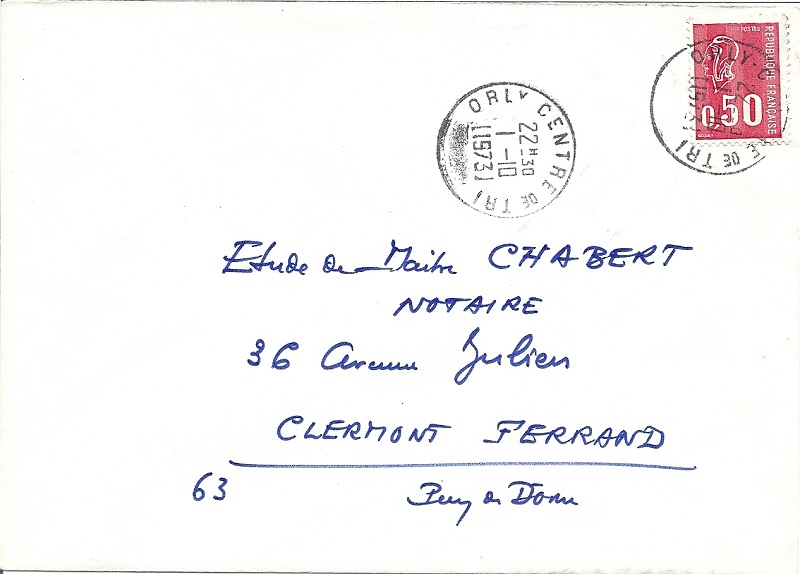 POSTES
REPUBLIQUE FRANÇAISE
0,50
ORLY CENTRE DE TRI
22H30
1-10
1973
Etude de Maître CHABERT
NOTAIRE
36 Avenue Julien
CLERMONT FERRAND
63 Puy de Dome